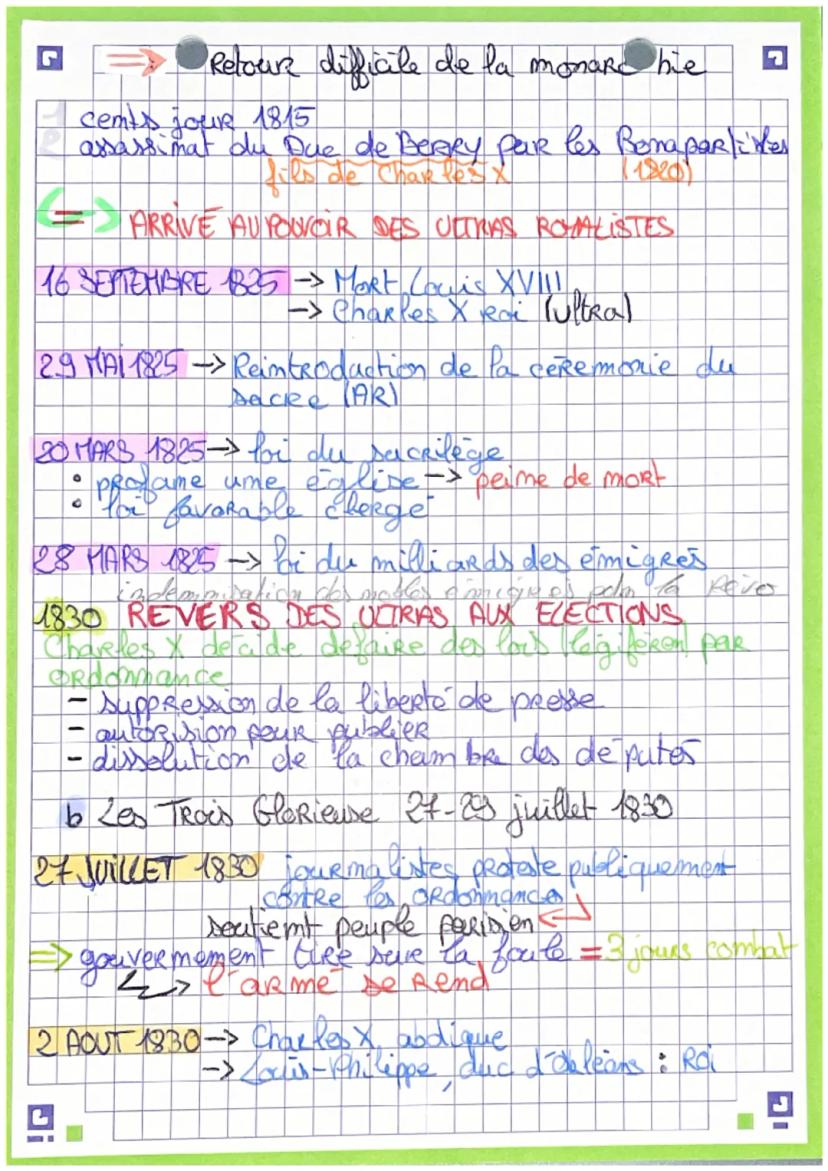 ⇒ Retour difficile de la monarchie
cents jour 1815
assassinat du Duc de BERRY par les Bonapartistes
fils de Charles X (1820)
⇒ ARRIVÉ AU POUVOIR DES ULTRAS ROYALISTES
16 SEPTEMBRE 1825 → Mort Louis XVIII
→ Charles X roi (ultra)
29 MAI 1825 → Reintroduction de la cérémonie du
sacre (AR)
20 MARS 1825 → loi du sacrilège
• profane une église → peine de mort
• loi favorable clergé
28 MARS 1825 → loi du milliards des émigrés
indemnisation des nobles émigrés pdn la Révo
1830 REVERS DES ULTRAS AUX ELECTIONS
Charles X décide defaire des lois (légiférer) par
ordonnance
- suppression de la liberté de presse
- autorision pour publier
- dissolution de la chambre des députés
b Les Trois Glorieuse 27-29 juillet 1830
27 JUILLET 1830 journalistes proteste publiquement
contre les ordonnances
soutient peuple parisien
⇒ gouvernement tire sur la foule = 3 jours combat
→ l'armé se rend
2 AOUT 1830 → Charles X abdique
→ Louis-Philippe, duc d'Orléans : Roi